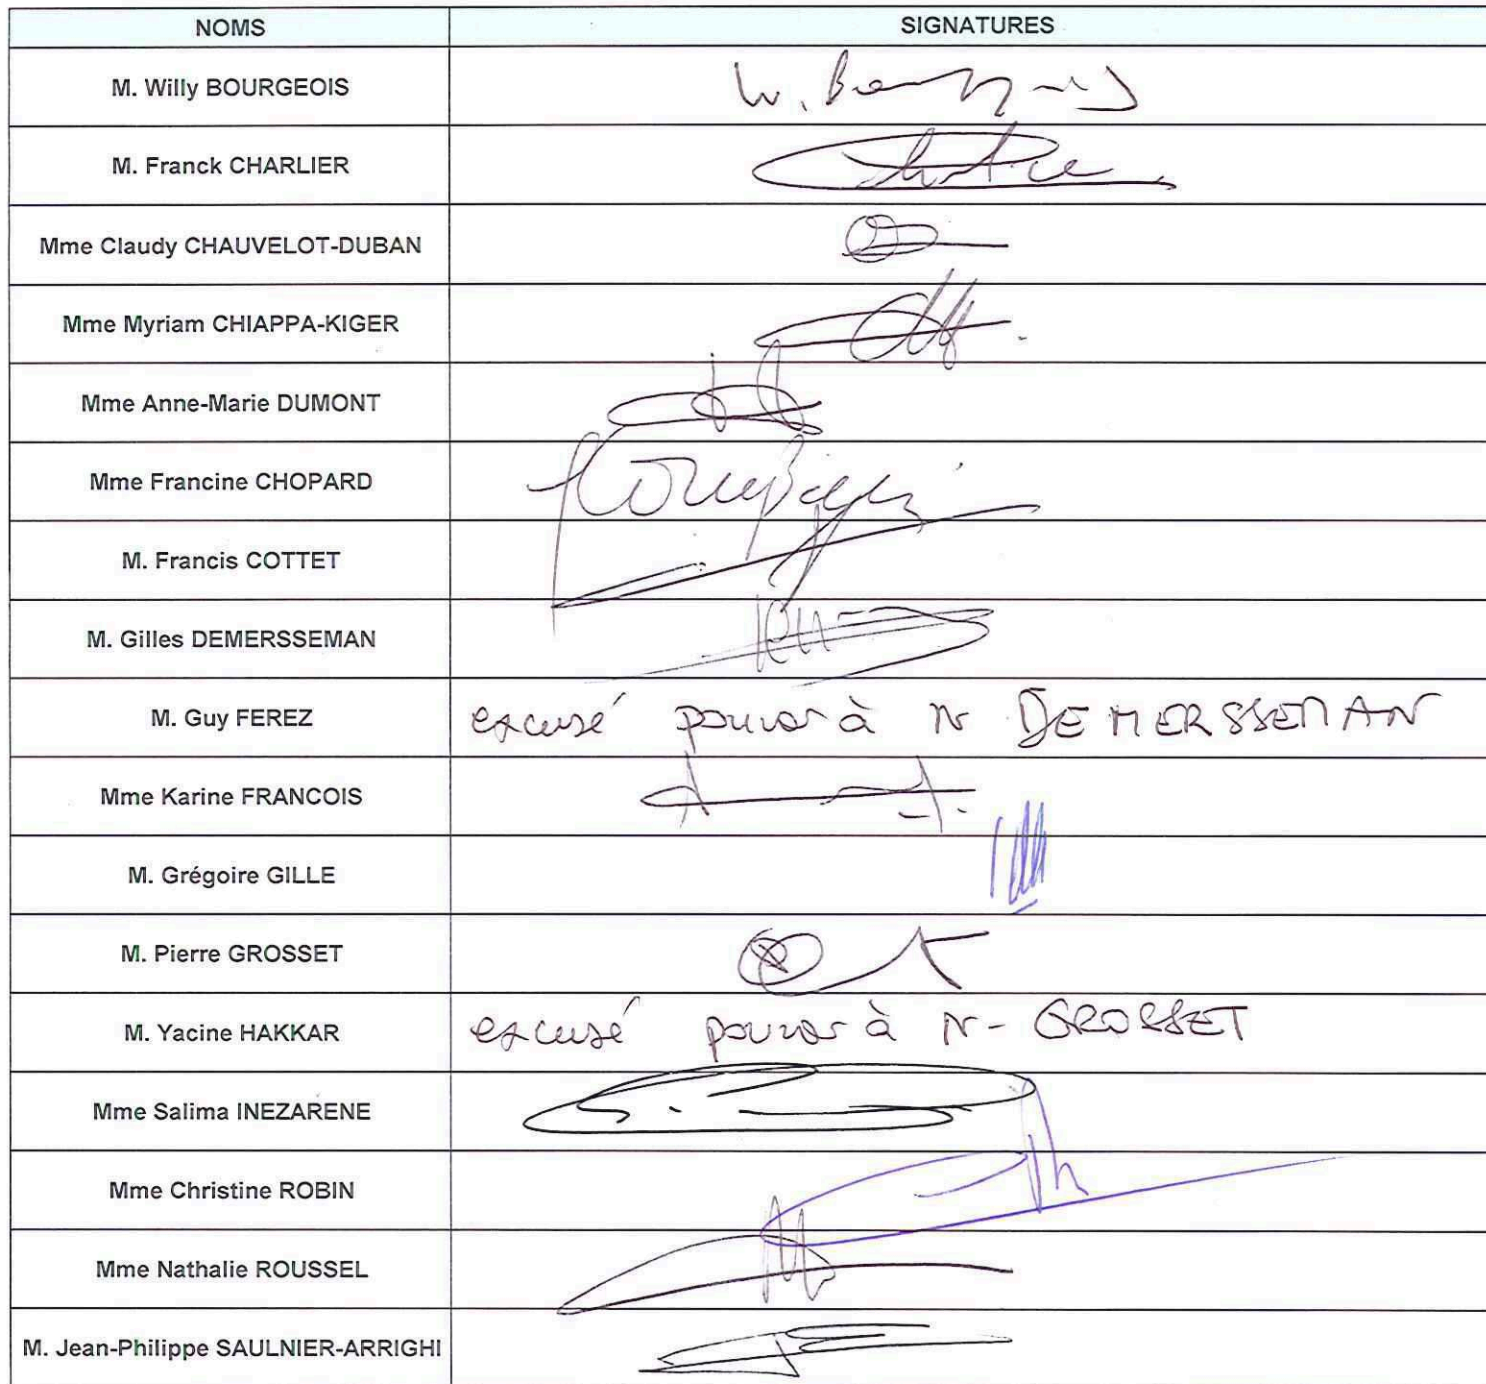 NOMS SIGNATURES
M. Willy BOURGEOIS W. Bourgeois
M. Franck CHARLIER
Mme Claudy CHAUVELOT-DUBAN
Mme Myriam CHIAPPA-KIGER
Mme Anne-Marie DUMONT
Mme Francine CHOPARD
M. Francis COTTET
M. Gilles DEMERSSEMAN
M. Guy FEREZ excusé pouvoir à M DEMERSSEMAN
Mme Karine FRANCOIS
M. Grégoire GILLE
M. Pierre GROSSET
M. Yacine HAKKAR excusé pouvoir à M - GROSSET
Mme Salima INEZARENE
Mme Christine ROBIN
Mme Nathalie ROUSSEL
M. Jean-Philippe SAULNIER-ARRIGHI